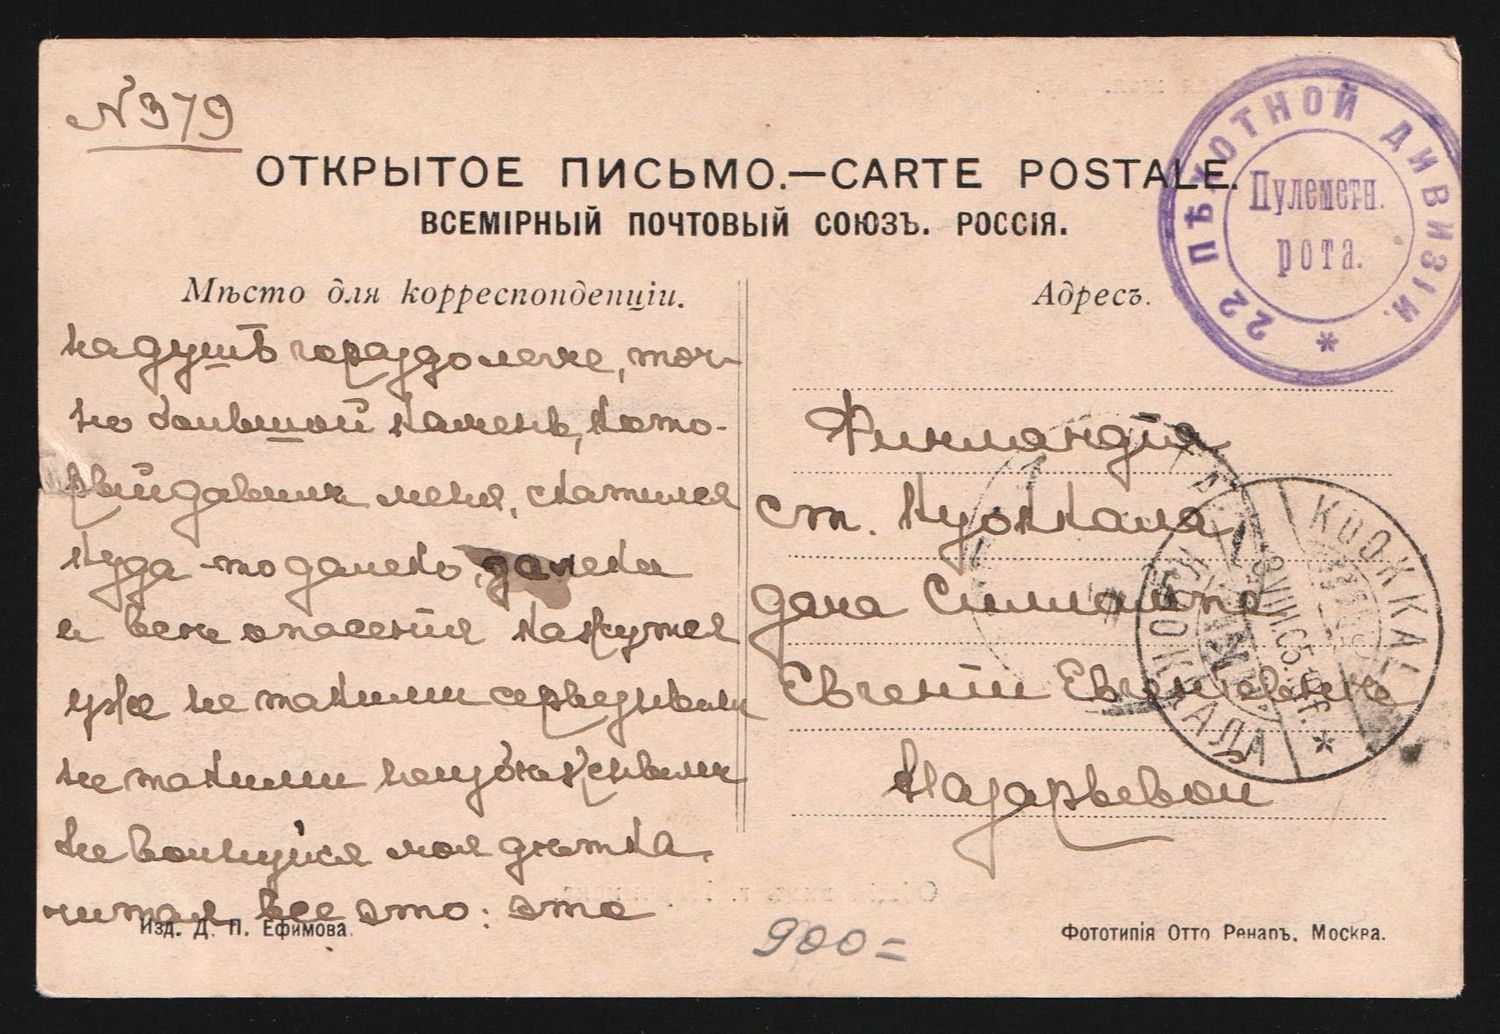 N 379
ОТКРЫТОЕ ПИСЬМО.—CARTE POSTALE.
ВСЕМІРНЫЙ ПОЧТОВЫЙ СОЮЗЪ. РОССІЯ.
22 ПѢХОТНОЙ ДИВИЗІИ.
Пулеметн.
рота.
Мѣсто для корреспонденціи.
на душѣ гораздо легче, точ-
но большой камень, кото-
рый давилъ меня, скатился
куда-то далеко, далеко
и всѣ опасенія кажутся
уже не такими серьезными
не такими
не волнуйся моя дѣтка,
читая все это: это
Адресъ.
Финляндія
ст. Куоккала
дача
Евгеніи Евгеніевнѣ
Назарьевой
KUOKKALA
КУОККАЛА
900=
Изд. Д. П. Ефимова.
Фототипія Отто Ренаръ. Москва.